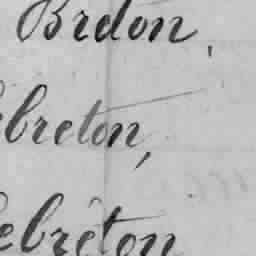 Breton,
ebreton,
ebreton